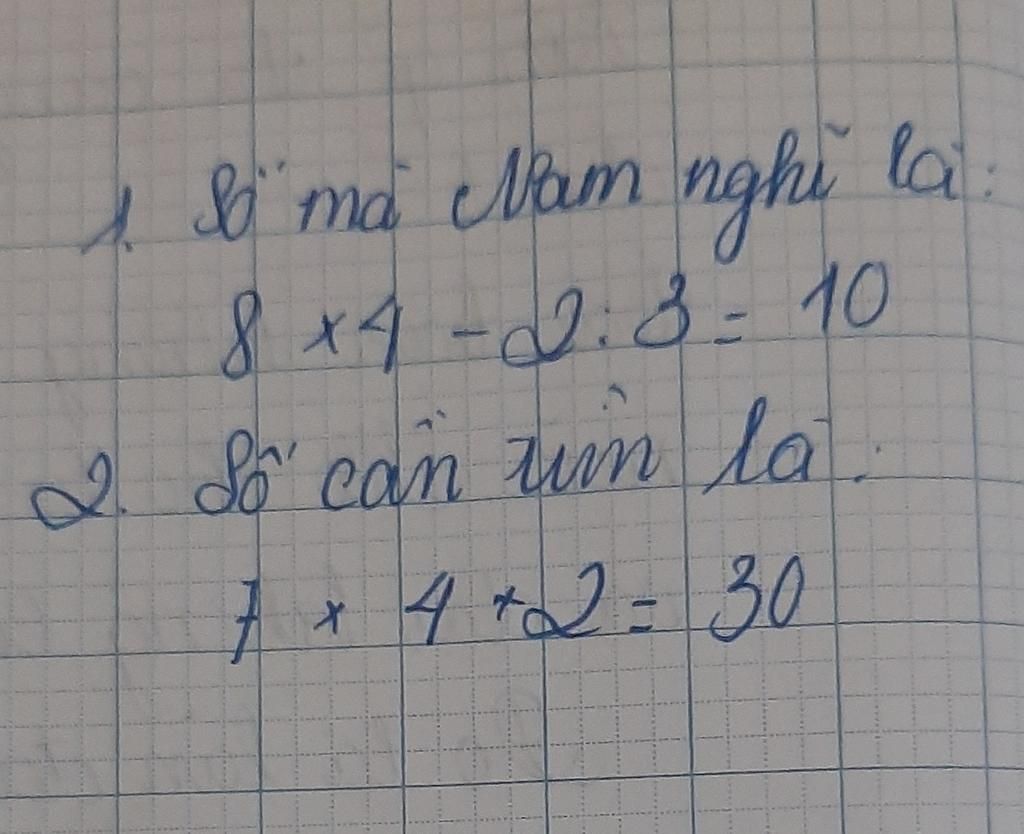 1. Số mà Nam nghĩ là:
8 x 4 - 2 : 3 = 10
2. Số cần tìm là:
7 x 4 + 2 = 30